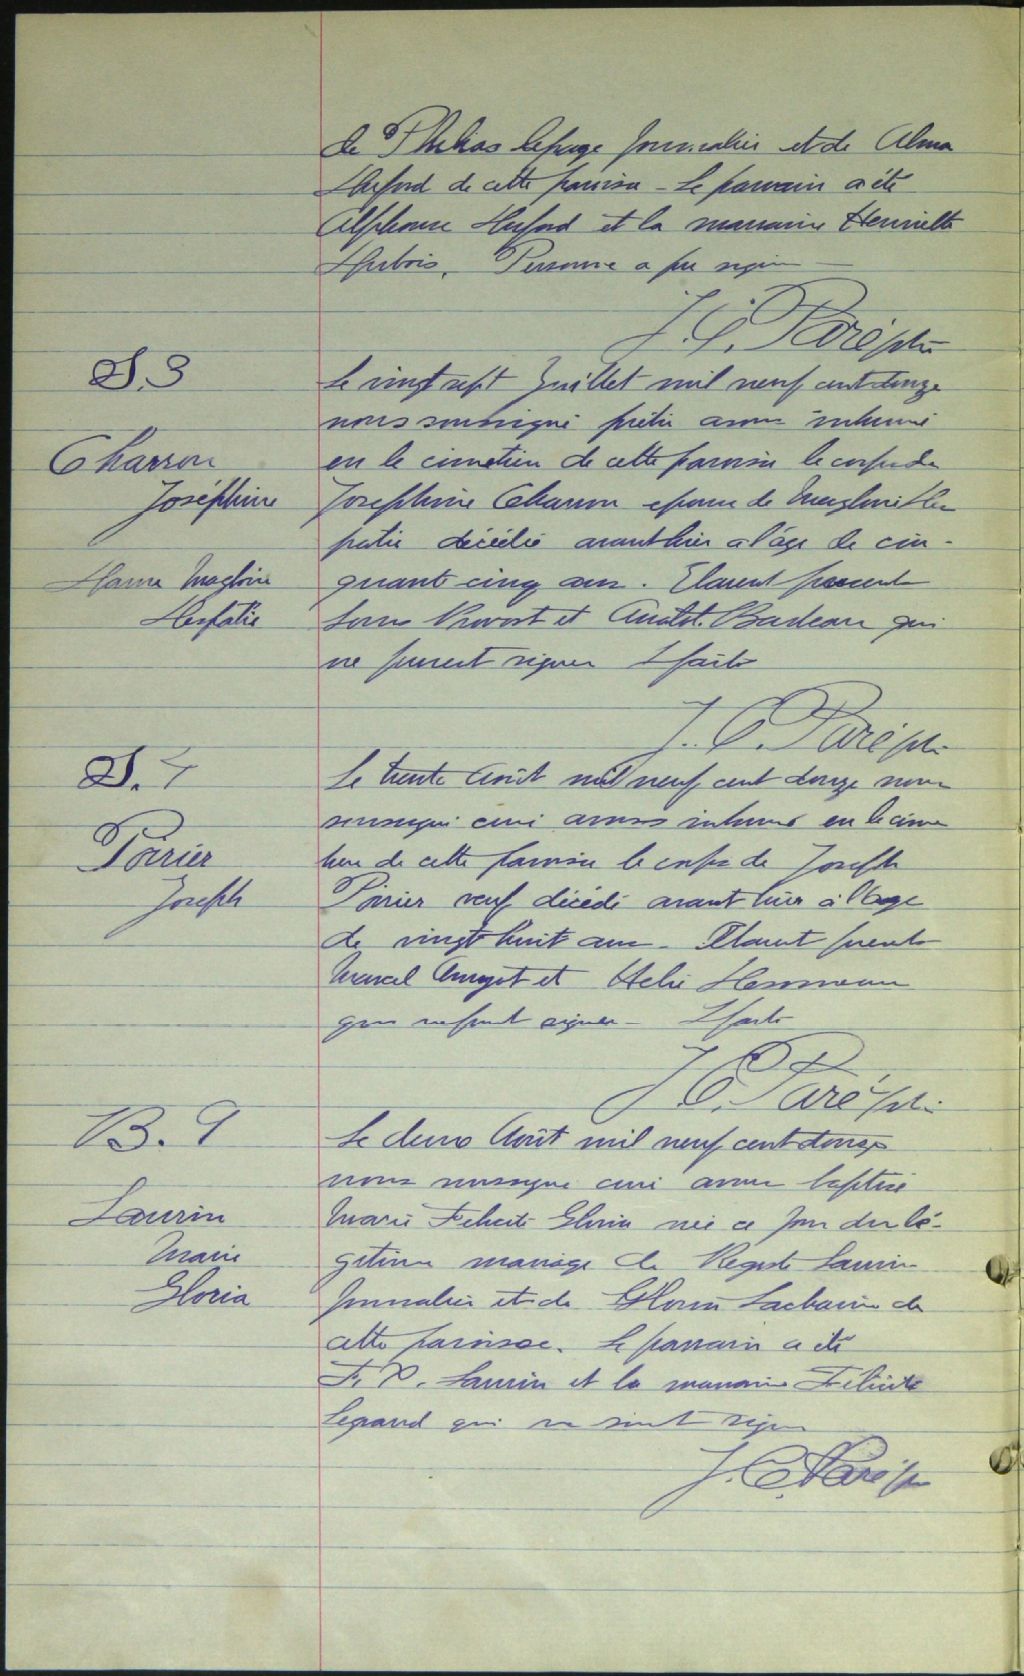 de Philias Lepage journalier et de Alma
Huford de cette paroisse - Le parrain a été
Alphonse Huford et la marraine Henriette
Dubois. Personne a pu signer
J. C. Paré ptre
S. 3
Charron
Joséphine
Dame Magloire
Despatie
Le vingt sept Juillet mil neuf cent douze
nous soussigné prêtre avons inhumé
en le cimetière de cette paroisse le corps de
Josephine Charron epouse de Magloire Des
patie décédée avant hier a l'âge de cin-
quante cinq ans. Etaient présents
Louis Provost et Anatol. Bardeau qui
ne purent signer
J. C. Paré ptre
S. 4
Poirier
Joseph
Le trente Août mil neuf cent douze nous
soussigné curé avons inhumé en le cime
tiere de cette paroisse le corps de Joseph
Poirier veuf décédé avant hier à l'âge
de vingt huit ans - Etaient présents
Marcel Amyot et
qui ne purent signer -
J. C. Paré ptre
B. 9
Laurin
Marie
Gloria
Le deux Août mil neuf cent douze
nous soussigné curé avons baptisé
Marie Felicité Gloria née ce jour du lé-
gitime mariage de Laurin
journalier et de Lachaine de
cette paroisse. Le parrain a été
F. X. Laurin et la marraine Félicité
Legrand qui ne signer
J. C. Paré ptre